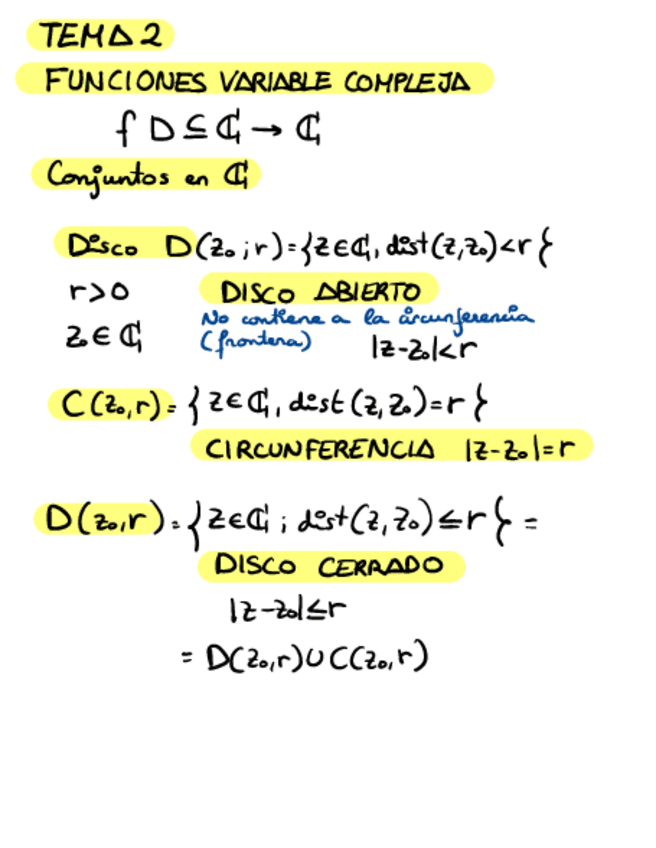 TEMA 2
FUNCIONES VARIABLE COMPLEJA
f D ⊆ ℂ → ℂ
Conjuntos en ℂ
Disco D(z₀; r) = {z ∈ ℂ, dist(z, z₀) < r}
r > 0 DISCO ABIERTO
z₀ ∈ ℂ No contiene a la circunferencia
(frontera) |z - z₀| < r
C(z₀, r) = {z ∈ ℂ, dist(z, z₀) = r}
CIRCUNFERENCIA |z - z₀| = r
D(z₀, r) = {z ∈ ℂ; dist(z, z₀) ≤ r} =
DISCO CERRADO
|z - z₀| ≤ r
= D(z₀, r) ∪ C(z₀, r)